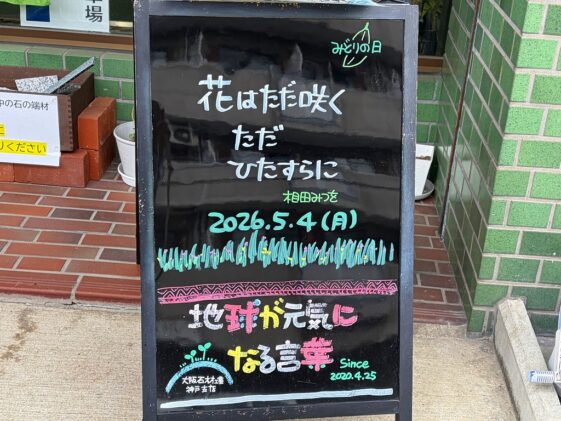 場
みどりの日
花はただ咲く
ただ
ひたすらに
相田みつを
2026.5.4(月)
中の石の端材
りください
地球が元気に
なる言葉
Since
2020.4.25
神戸支店